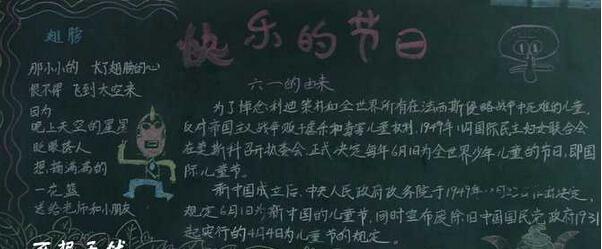 快乐的节日
翅膀
那小小的 长了翅膀的心
恨不得 飞到太空来
因为
晚上天空的星星
眨眼路人
想摘满满的
一花篮
送给老师和小朋友
六一的由来
为了悼念利迪策村和全世界所有在法西斯侵略战争中死难的儿童,
反对帝国主义战争贩子虐杀和毒害儿童权利,1949年11月国际民主妇女联合会
在莫斯科召开执委会,正式决定每年6月1日为全世界少年儿童的节日,即国
际儿童节。
新中国成立后,中央人民政府政务院于1949年12月23日作出决定,
规定6月1日为新中国的儿童节,同时宣布废除旧中国国民党政府1931
起实行的4月4日为儿童节的规定。